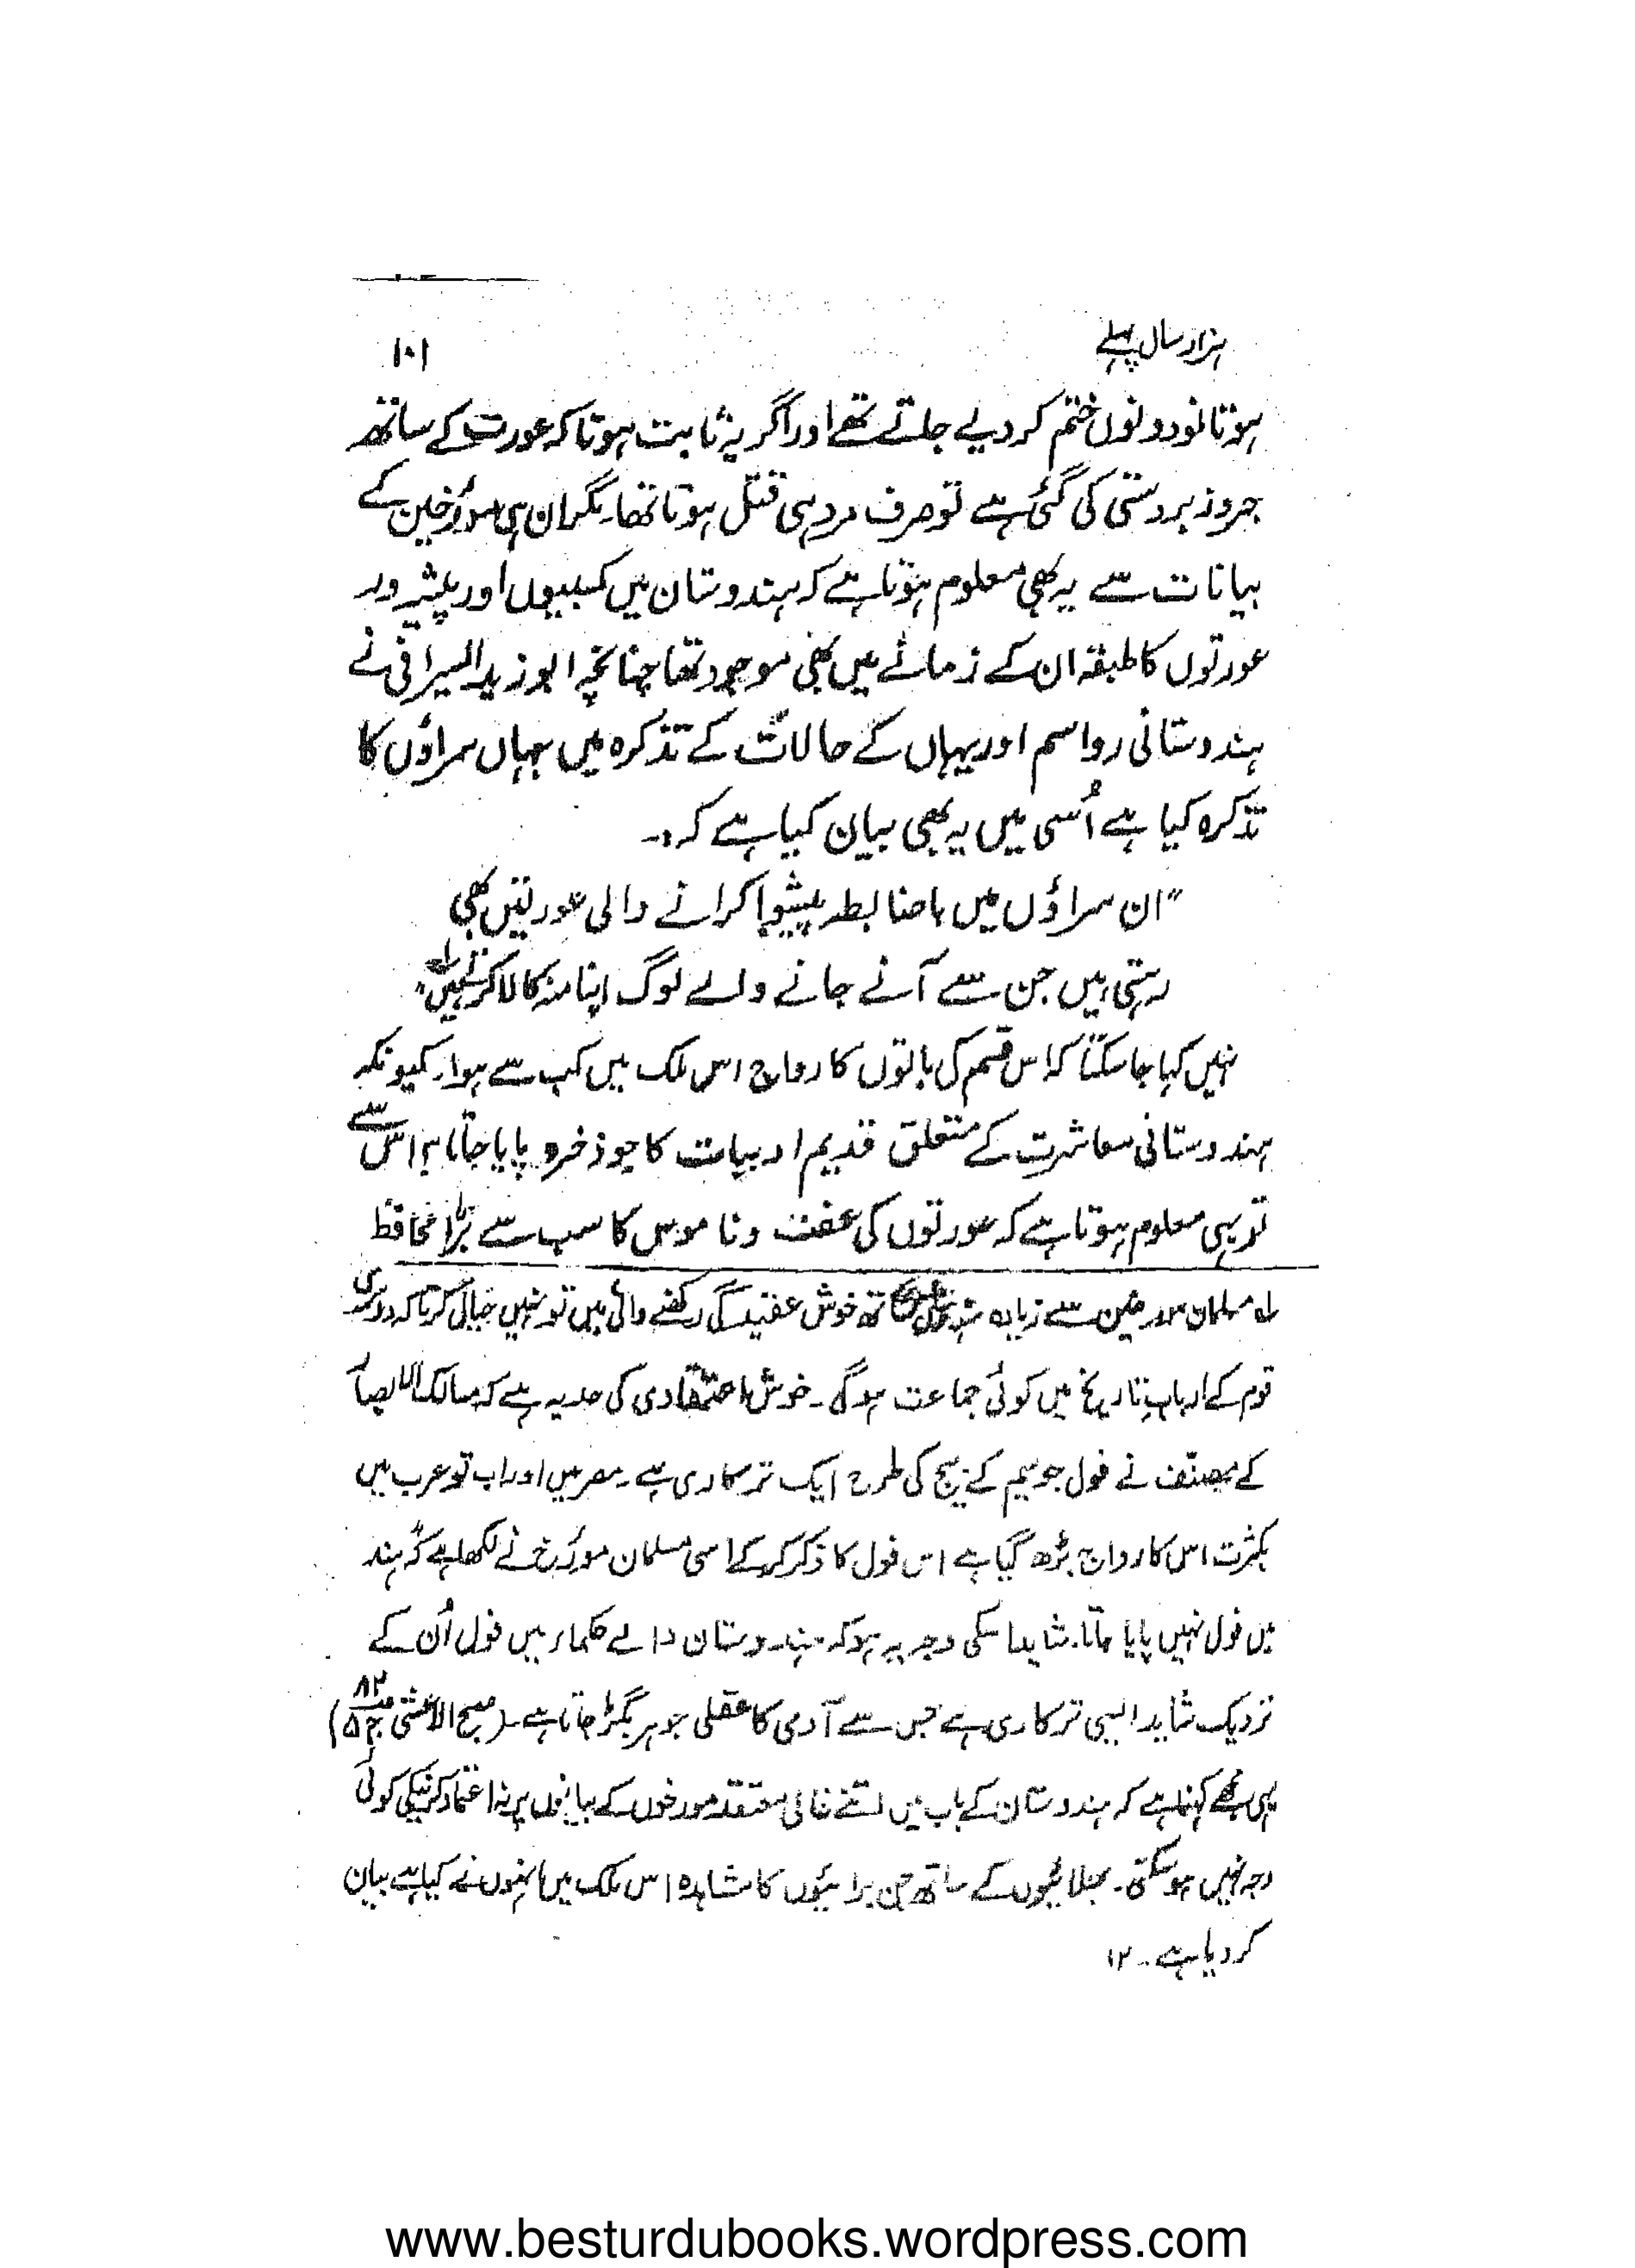 ہزار سال پہلے
۱۰۱
ہوتا تو دونوں ختم کر دیے جاتے تھے اور اگر یہ ثابت ہوتا کہ عورت کے ساتھ
جبر و زبردستی کی گئی ہے تو صرف مرد ہی قتل ہوتا تھا۔ مگر ان ہی مورخین کے
بیانات سے یہ بھی معلوم ہوتا ہے کہ ہندوستان میں کسبیوں اور پیشہ ور
عورتوں کا طبقہ ان کے زمانے میں بھی موجود تھا چنانچہ ابوزید السیرافی نے
ہندوستانی رواسم اور یہاں کے حالات کے تذکرہ میں یہاں سراؤں کا
تذکرہ کیا ہے اُسی میں یہ بھی بیان کیا ہے کہ :۔
"ان سراؤں میں باضابطہ پیشہ کرانے والی عورتیں بھی
رہتی ہیں جن سے آنے جانے والے لوگ اپنا منہ کالا کرتے ہیں" ؎۱
نہیں کہا جا سکتا کہ اس قسم کی باتوں کا رواج اس ملک میں کب سے ہوا۔ کیونکہ
ہندوستانی معاشرت کے متعلق قدیم ادبیات کا جو ذخیرہ پایا جاتا ہے اس سے
تو یہی معلوم ہوتا ہے کہ عورتوں کی عفت و ناموس کا سب سے بڑا محافظ
؎۱ مسلمان مورخین سے زیادہ ساتھ خوش عقیدگی رکھنے والی میں تو نہیں خیال کرتا کہ دوسری
قوم کے اربابِ تاریخ میں کوئی جماعت ہوگی۔ خوش اعتقادی کی حد یہ ہے کہ مسالک الابصار
کے مصنف نے فول جو سیم کے بیج کی طرح ایک ترکاری ہے۔ مصر میں اور اب تو عرب میں
بکثرت اس کا رواج بڑھ گیا ہے اس فول کا ذکر کر کے اسی مسلمان مورخ نے لکھا ہے کہ "ہند
میں فول نہیں پایا جاتا۔ شاید اسکی وجہ یہ ہو کہ ہندوستان والے حکماء ہیں فول اُن کے
نزدیک شاید ایسی ترکاری ہے جس سے آدمی کا عقلی جوہر بگڑ جاتا ہے۔ (صبح الاعشی ص ۸۲ ج ۵)
یہی مجھے کہنا ہے کہ ہندوستان کے باب میں اتنے غالی معتقد مورخوں کے بیانوں پر نہ اعتماد کرنیکی کوئی
وجہ نہیں ہو سکتی۔ بھلائیوں کے ساتھ جن برائیوں کا مشاہدہ اس ملک میں انہوں نے کیا ہے بیان
کر دیا ہے۔ ۱۲
www.besturdubooks.wordpress.com